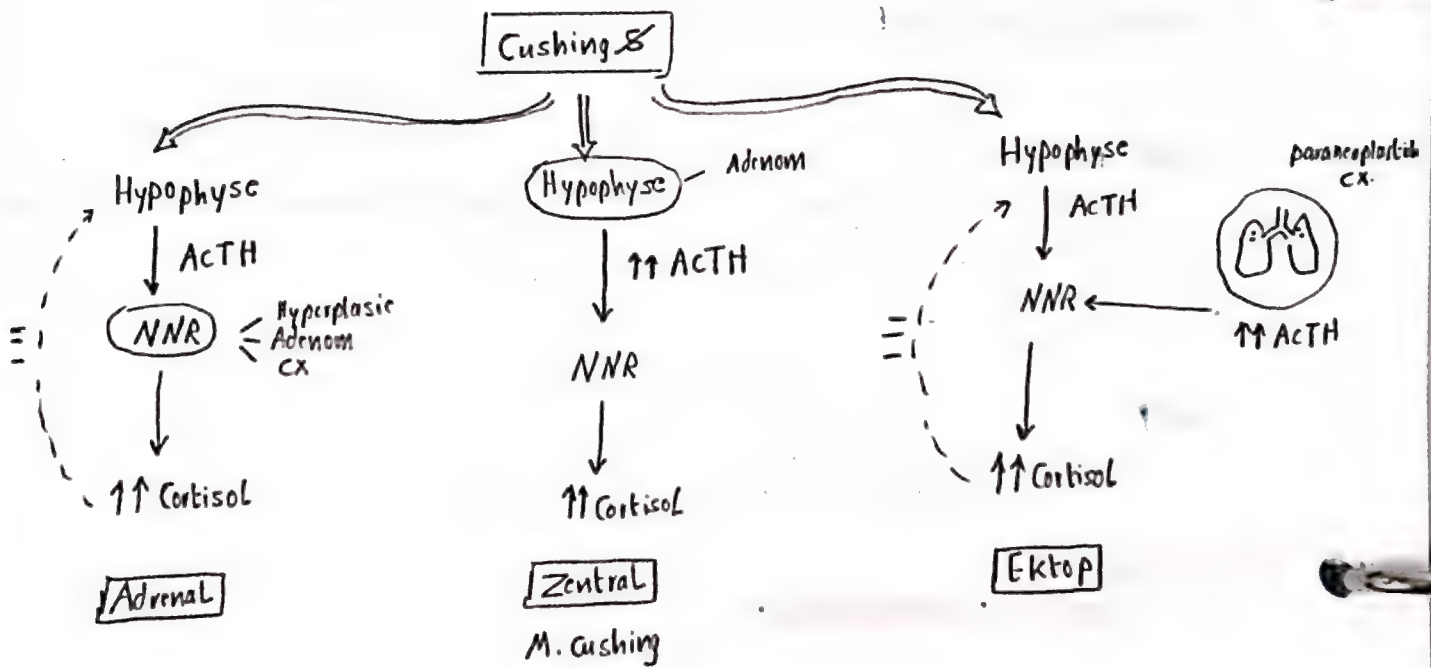 Cushing S
Hypophyse
ACTH
NNR
Hyperplasie
Adenom
CX
↑↑ Cortisol
Adrenal
Hypophyse
Adenom
↑↑ ACTH
NNR
↑↑ Cortisol
Zentral
M. Cushing
Hypophyse
ACTH
NNR
↑↑ Cortisol
Ektop
CX.
↑↑ ACTH